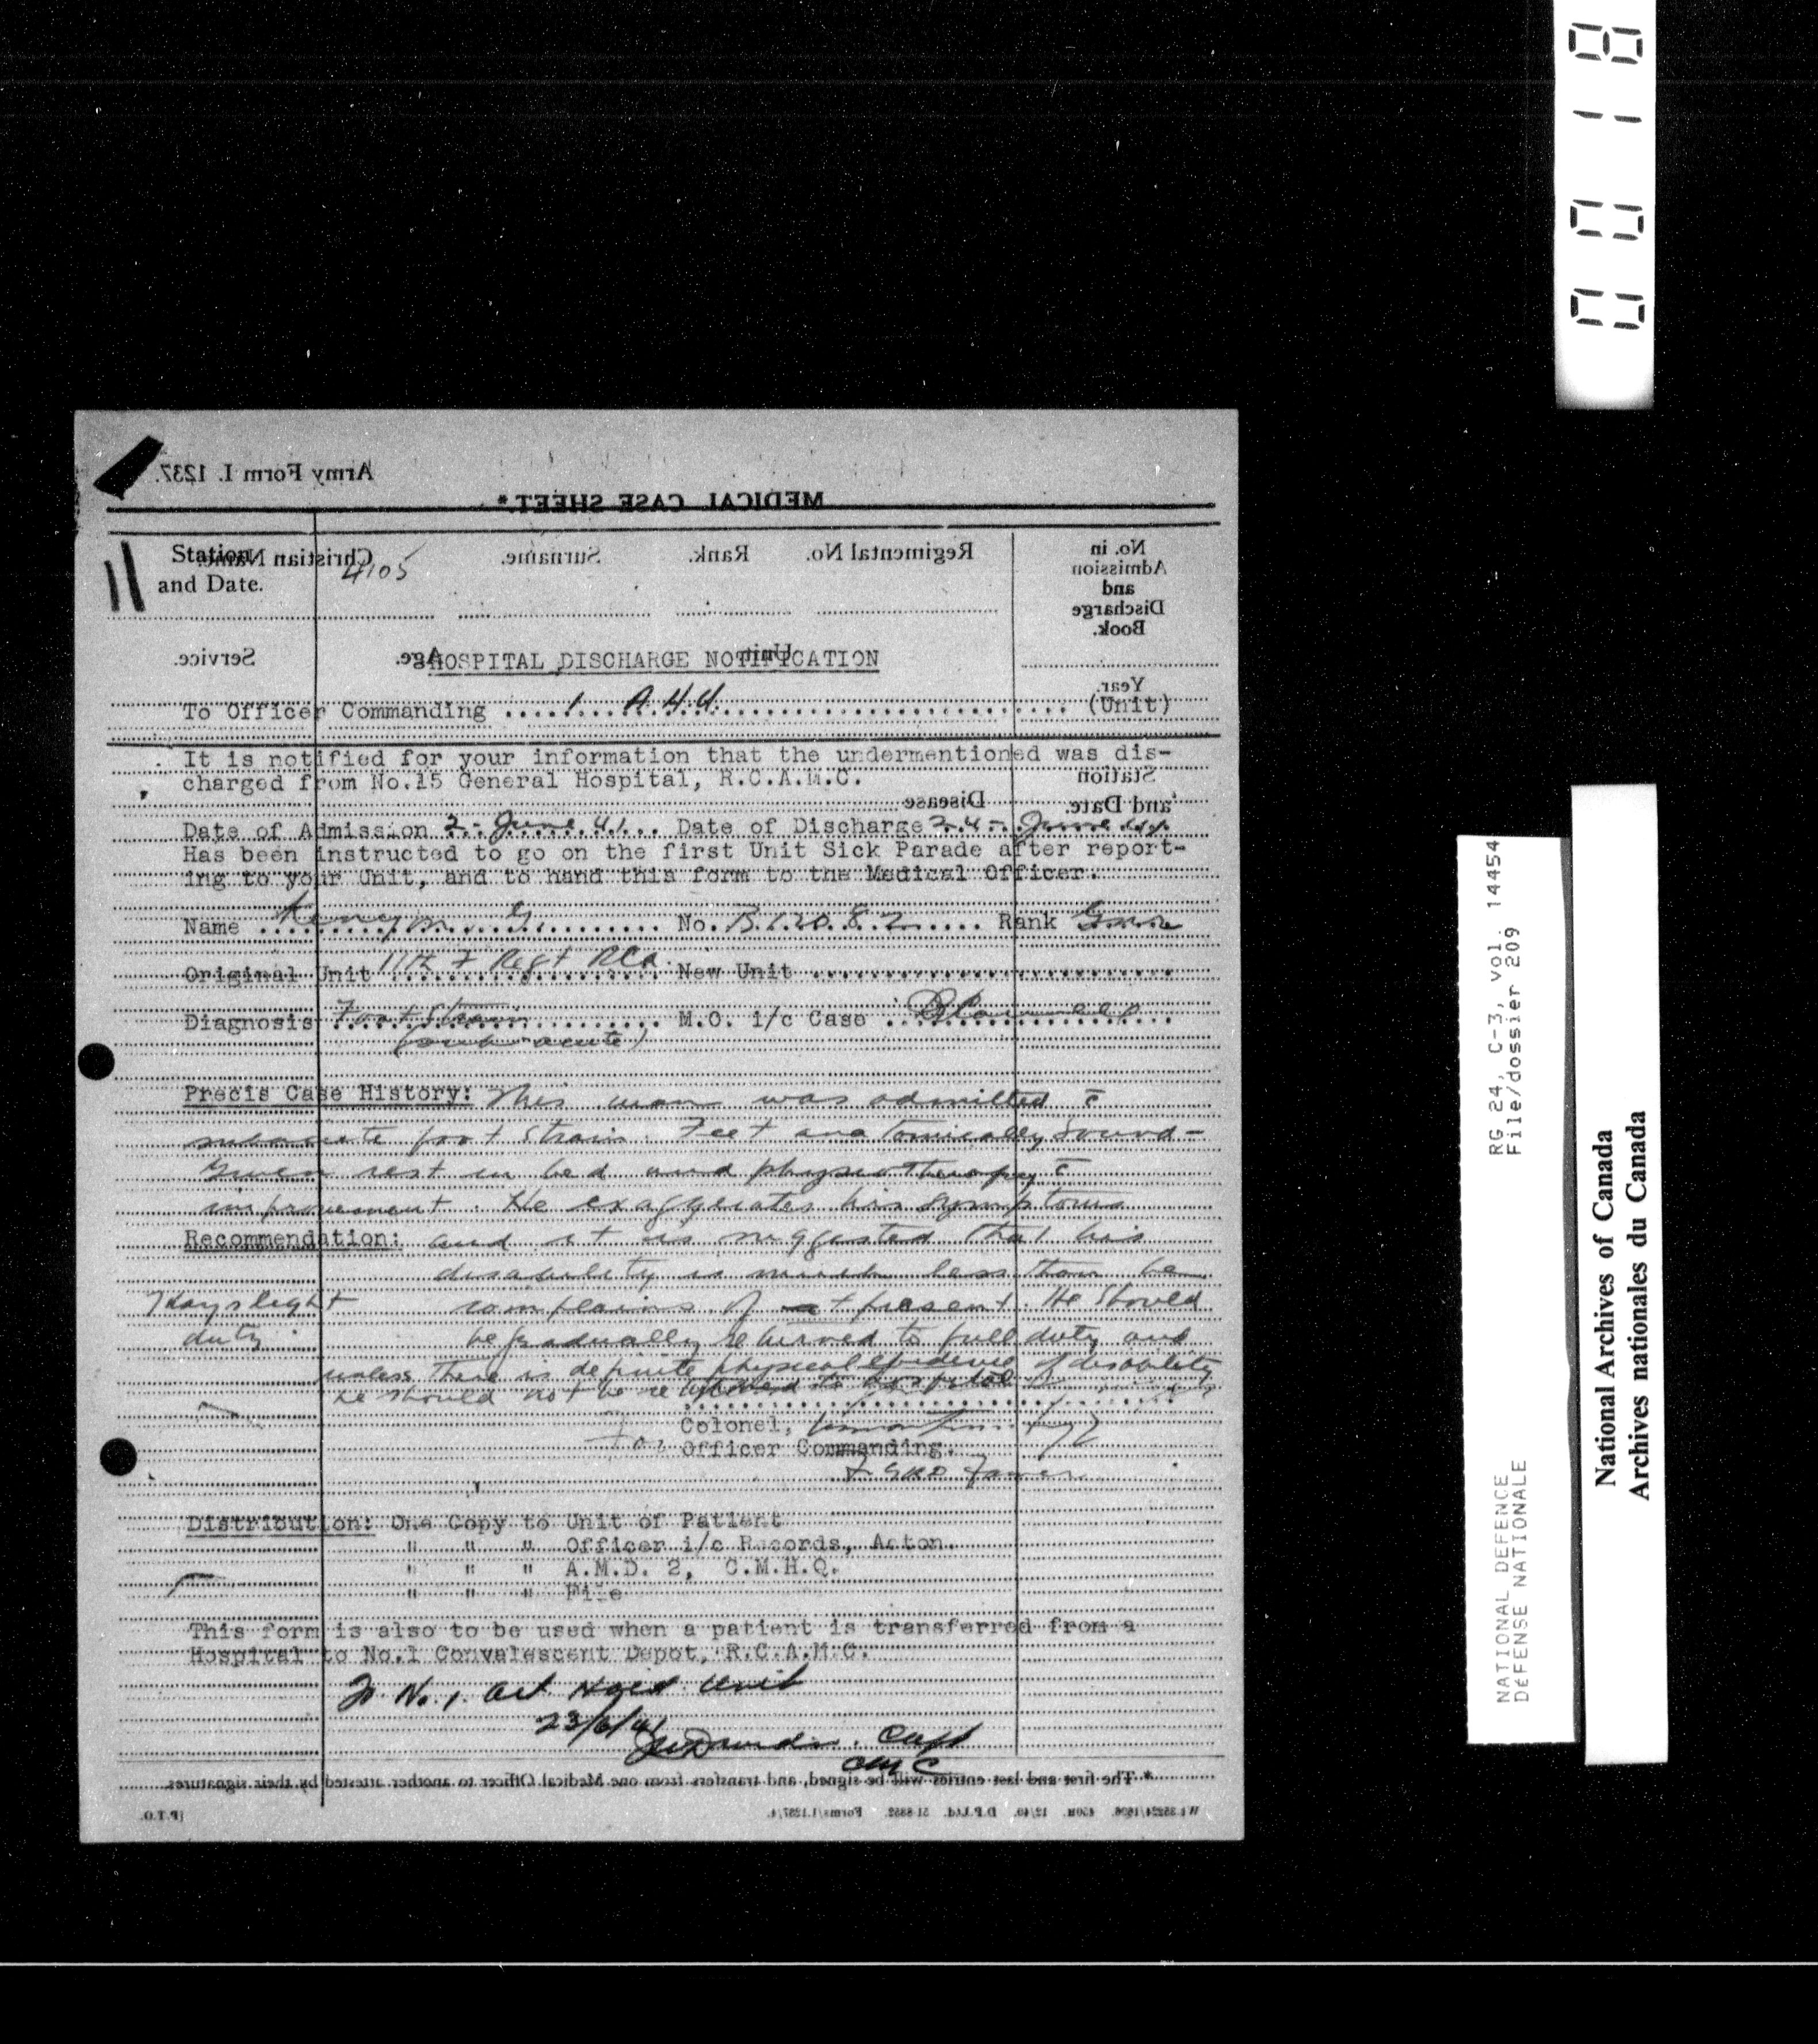 0018
Army Form I. 1237.
MEDICAL CASE SHEET.*
Station and Date.
4105
Christian Name.
Surname.
Rank.
Regimental No.
No. in Admission and Discharge Book.
Service.
Age.
Unit
Year.
HOSPITAL DISCHARGE NOTIFICATION
To Officer Commanding .... 1 A.H.U. .... (Unit)
It is notified for your information that the undermentioned was dis-
charged from No.15 General Hospital, R.C.A.M.C.
Station and Date.
Disease
Date of Admission 2 - June 41 ... Date of Discharge 24 - June
Has been instructed to go on the first Unit Sick Parade after report-
ing to your Unit, and to hand this form to the Medical Officer.
Name Kenyon G. No. B.12082 Rank Gnr
Original Unit 11th F Regt RCA New Unit
Diagnosis Foot Strain M.O. i/c Case
(sub-acute)
Precis Case History: This man was admitted c̄
subacute foot strain. Feet anatomically sound -
Given rest in bed and physiotherapy c̄
improvement. He exaggerates his symptoms
Recommendation: and it is suggested that his
disability is much less than he
7 days light complains of at present. He should
duty be gradually returned to full duty and
unless there is definite physical evidence of disability
he should not be returned to hospital
Colonel,
For Officer Commanding.
Distribution: One Copy to Unit of Patient
" " " Officer i/c Records, Acton.
" " " A.M.D. 2, C.M.H.Q.
" " " File
This form is also to be used when a patient is transferred from a
Hospital to No.1 Convalescent Depot, R.C.A.M.C.
To No. 1. Art. Hold. Unit
23/6/41
Capt
* The first and last entries will be signed, and transfers from one Medical Officer to another attested by their signatures.
[P.T.O.
RG 24, C-3, vol. 14454
File/dossier 209
NATIONAL DEFENCE
DÉFENSE NATIONALE
National Archives of Canada
Archives nationales du Canada